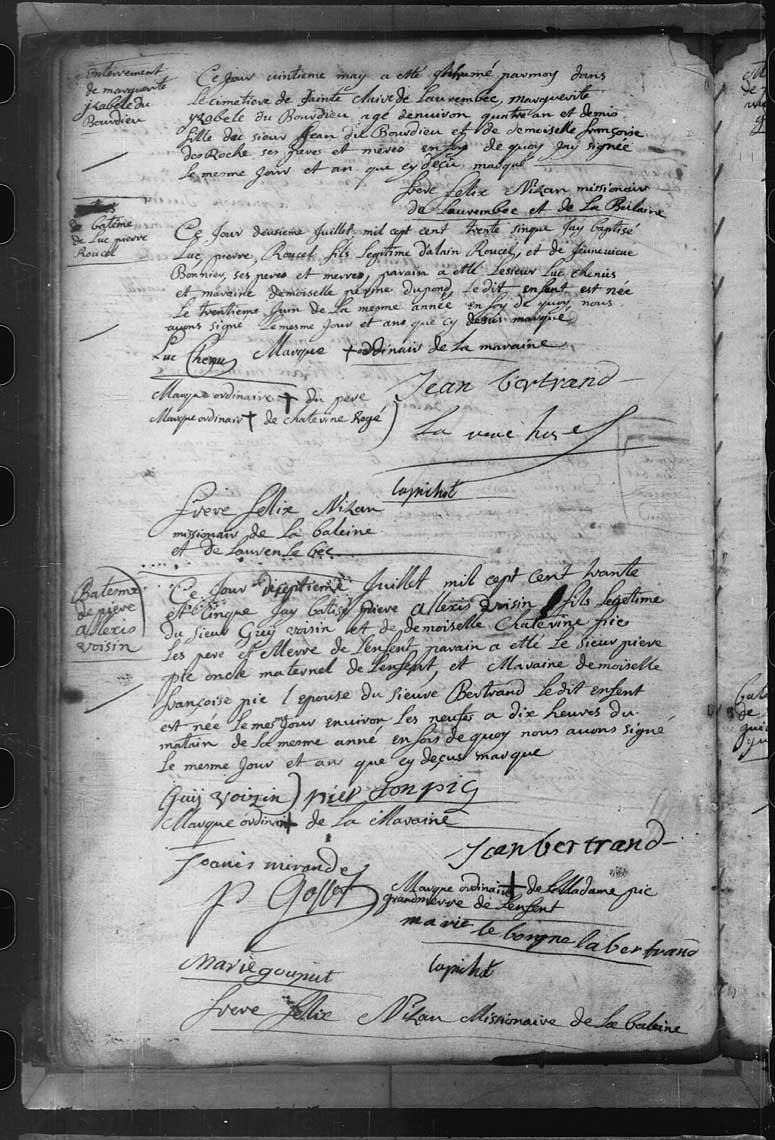 enterrement
de marguerite
yzabele du
Bourdieu
Ce jour vintieme may a eté Inhumé par moy dans
Le cimetiere de Sainte Claire de Laurembec, marguerite
yzabele du Bourdieu agé denuiron quatre an et demis
fille du sieur Jean du Bourdieu et de demoiselle françoise
des Roche ses peres et meres en foy de quoy Jay signée
Le mesme Jour et an que cy deçu marqué
frere felix Nizan missionair
de Laurembec et de La Balaine
bateme
de Luc pierre
Roucel
Ce Jour deusieme Juillet mil cept cent trente sinque Jay baptisé
Luc, pierre, Roucel fils Legitime d'alain Roucel, et de Jeunevieue
Bonnier, ses peres et merres, parain a etté Lesieur Luc chenus
et maraine demoiselle perine dupond, Ledit enfent est née
Le trentieme Juin de La mesme année en foy de quoy nous
auons signé Lemesme Jour et ans que cy desus marque
Luc Chenu Marque + ordinair de La maraine
Marque ordinaire + du pere
Jean bertrand
Marque ordinair + de chaterine Rogé)
La veue
Lapichot
frere felix Nizan
missionair de La baleine
et de Lauren Le bec
Bateme
de piere
allexis
voisin
Ce Jour diseptieme Juillet mil cept cent trante
et cinque Jay batisé piere allexis voisin fils Legetime
du sieur Guy voisin et de demoiselle Chaterine pic
Les pere et Merre de Lenfent, parain a etté Le sieur piere
pic oncle maternel de Lenfent, et Maraine demoiselle
françoise pic l epouse du sieure Bertrand Ledit enfent
est née Le mesme Jour enuiron Les neufes a dix heures du
matain de La mesme anné en fois de quoy nous auons signé
Le mesme Jour et an que cy deçus marque
Guy voizin) pier Lonpig
Marque ordinair + de La Maraine
Joanis mirande
Jean bertrand
P Gosset
Marque ordinaire + de Madame pic
grandmerre de Lenfent
marie le borgne labertrand
Marie gouput
Lapichot
frere felix Nizan Missionaire de La baleine